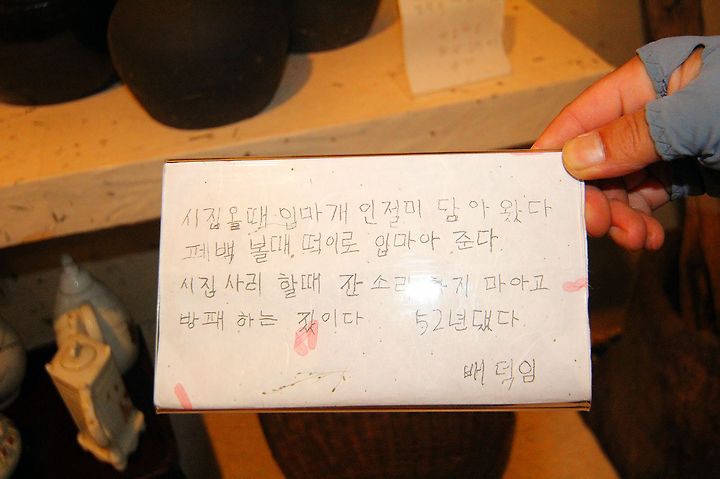 시집올때 입마개 인절미 담아 왔다
페백 볼때 떡이로 입마아 준다.
시집사리 할때 잔소리 하지 마아고
방패하는 짔이다 52년됐다
배덕임